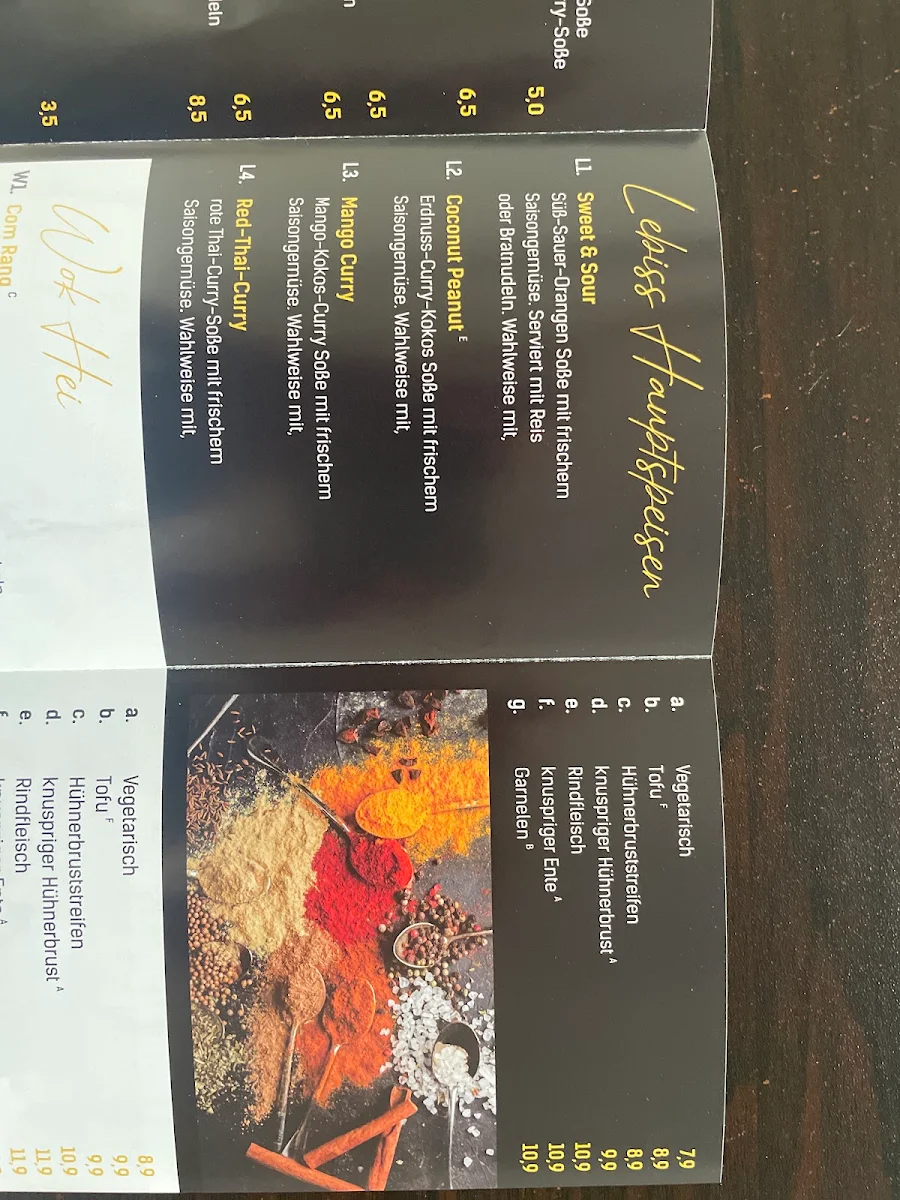 Soße
ry-Soße
5,0
6,5
6,5
6,5
6,5
8,5
3,5
Lebiss Hauptspeisen
L1. Sweet & Sour
Süß-Sauer-Orangen Soße mit frischem
Saisongemüse. Serviert mit Reis
oder Bratnudeln. Wahlweise mit,
L2. Coconut Peanut E
Erdnuss-Curry-Kokos Soße mit frischem
Saisongemüse. Wahlweise mit,
L3. Mango Curry
Mango-Kokos-Curry Soße mit frischem
Saisongemüse. Wahlweise mit,
L4. Red-Thai-Curry
rote Thai-Curry-Soße mit frischem
Saisongemüse. Wahlweise mit,
a. Vegetarisch 7,9
b. Tofu F 8,9
c. Hühnerbruststreifen 8,9
d. knuspriger Hühnerbrust A 9,9
e. Rindfleisch 10,9
f. knuspriger Ente A 10,9
g. Garnelen B 10,9
Wok Hei
W1. Com Rang C
a. Vegetarisch 8,9
b. Tofu F 9,9
c. Hühnerbruststreifen 9,9
d. knuspriger Hühnerbrust A 10,9
e. Rindfleisch 11,9
11,9